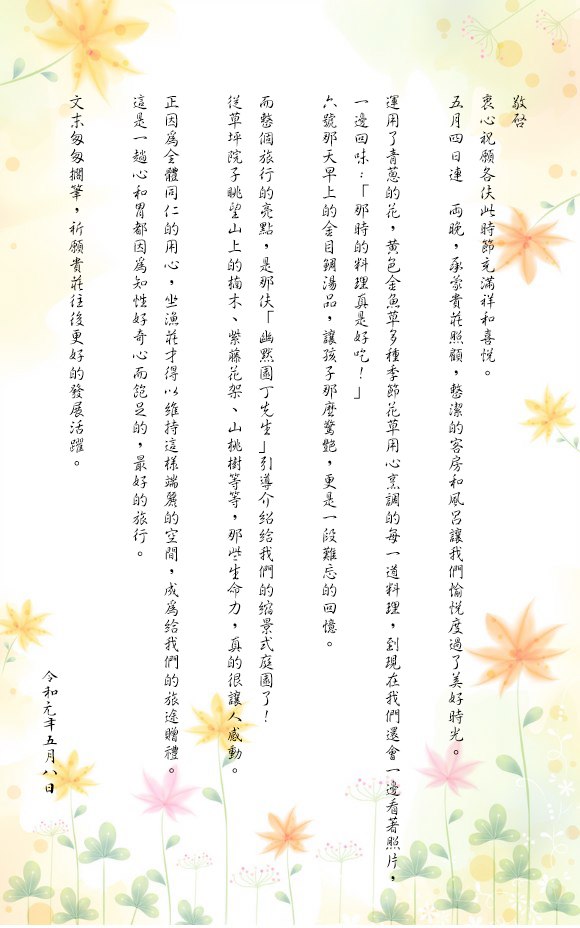 敬啓
衷心祝願各位此時節充滿祥和喜悅。
五月四日連　兩晚，承蒙貴莊照顧，整潔的客房和風呂讓我們愉悅度過了美好時光。
運用了青蔥的花，黃色金魚草多種季節花草用心烹調的每一道料理，到現在我們還會一邊看著照片，
一邊回味：「那時的料理真是好吃！」
六號那天早上的金目鯛湯品，讓孩子那麼驚艷，更是一段難忘的回憶。
而整個旅行的亮點，是那位「幽默園丁先生」引導介紹給我們的縮景式庭園了！
從草坪院子眺望山上的楠木、紫藤花架、山桃樹等等，那些生命力，真的很讓人感動。
正因為全體同仁的用心，坐漁莊才得以維持這樣端麗的空間，成為給我們的旅途贈禮。
這是一趟心和胃都因為知性好奇心而飽足的，最好的旅行。
文末匆匆擱筆，祈願貴莊往後更好的發展活躍。
令和元年五月八日